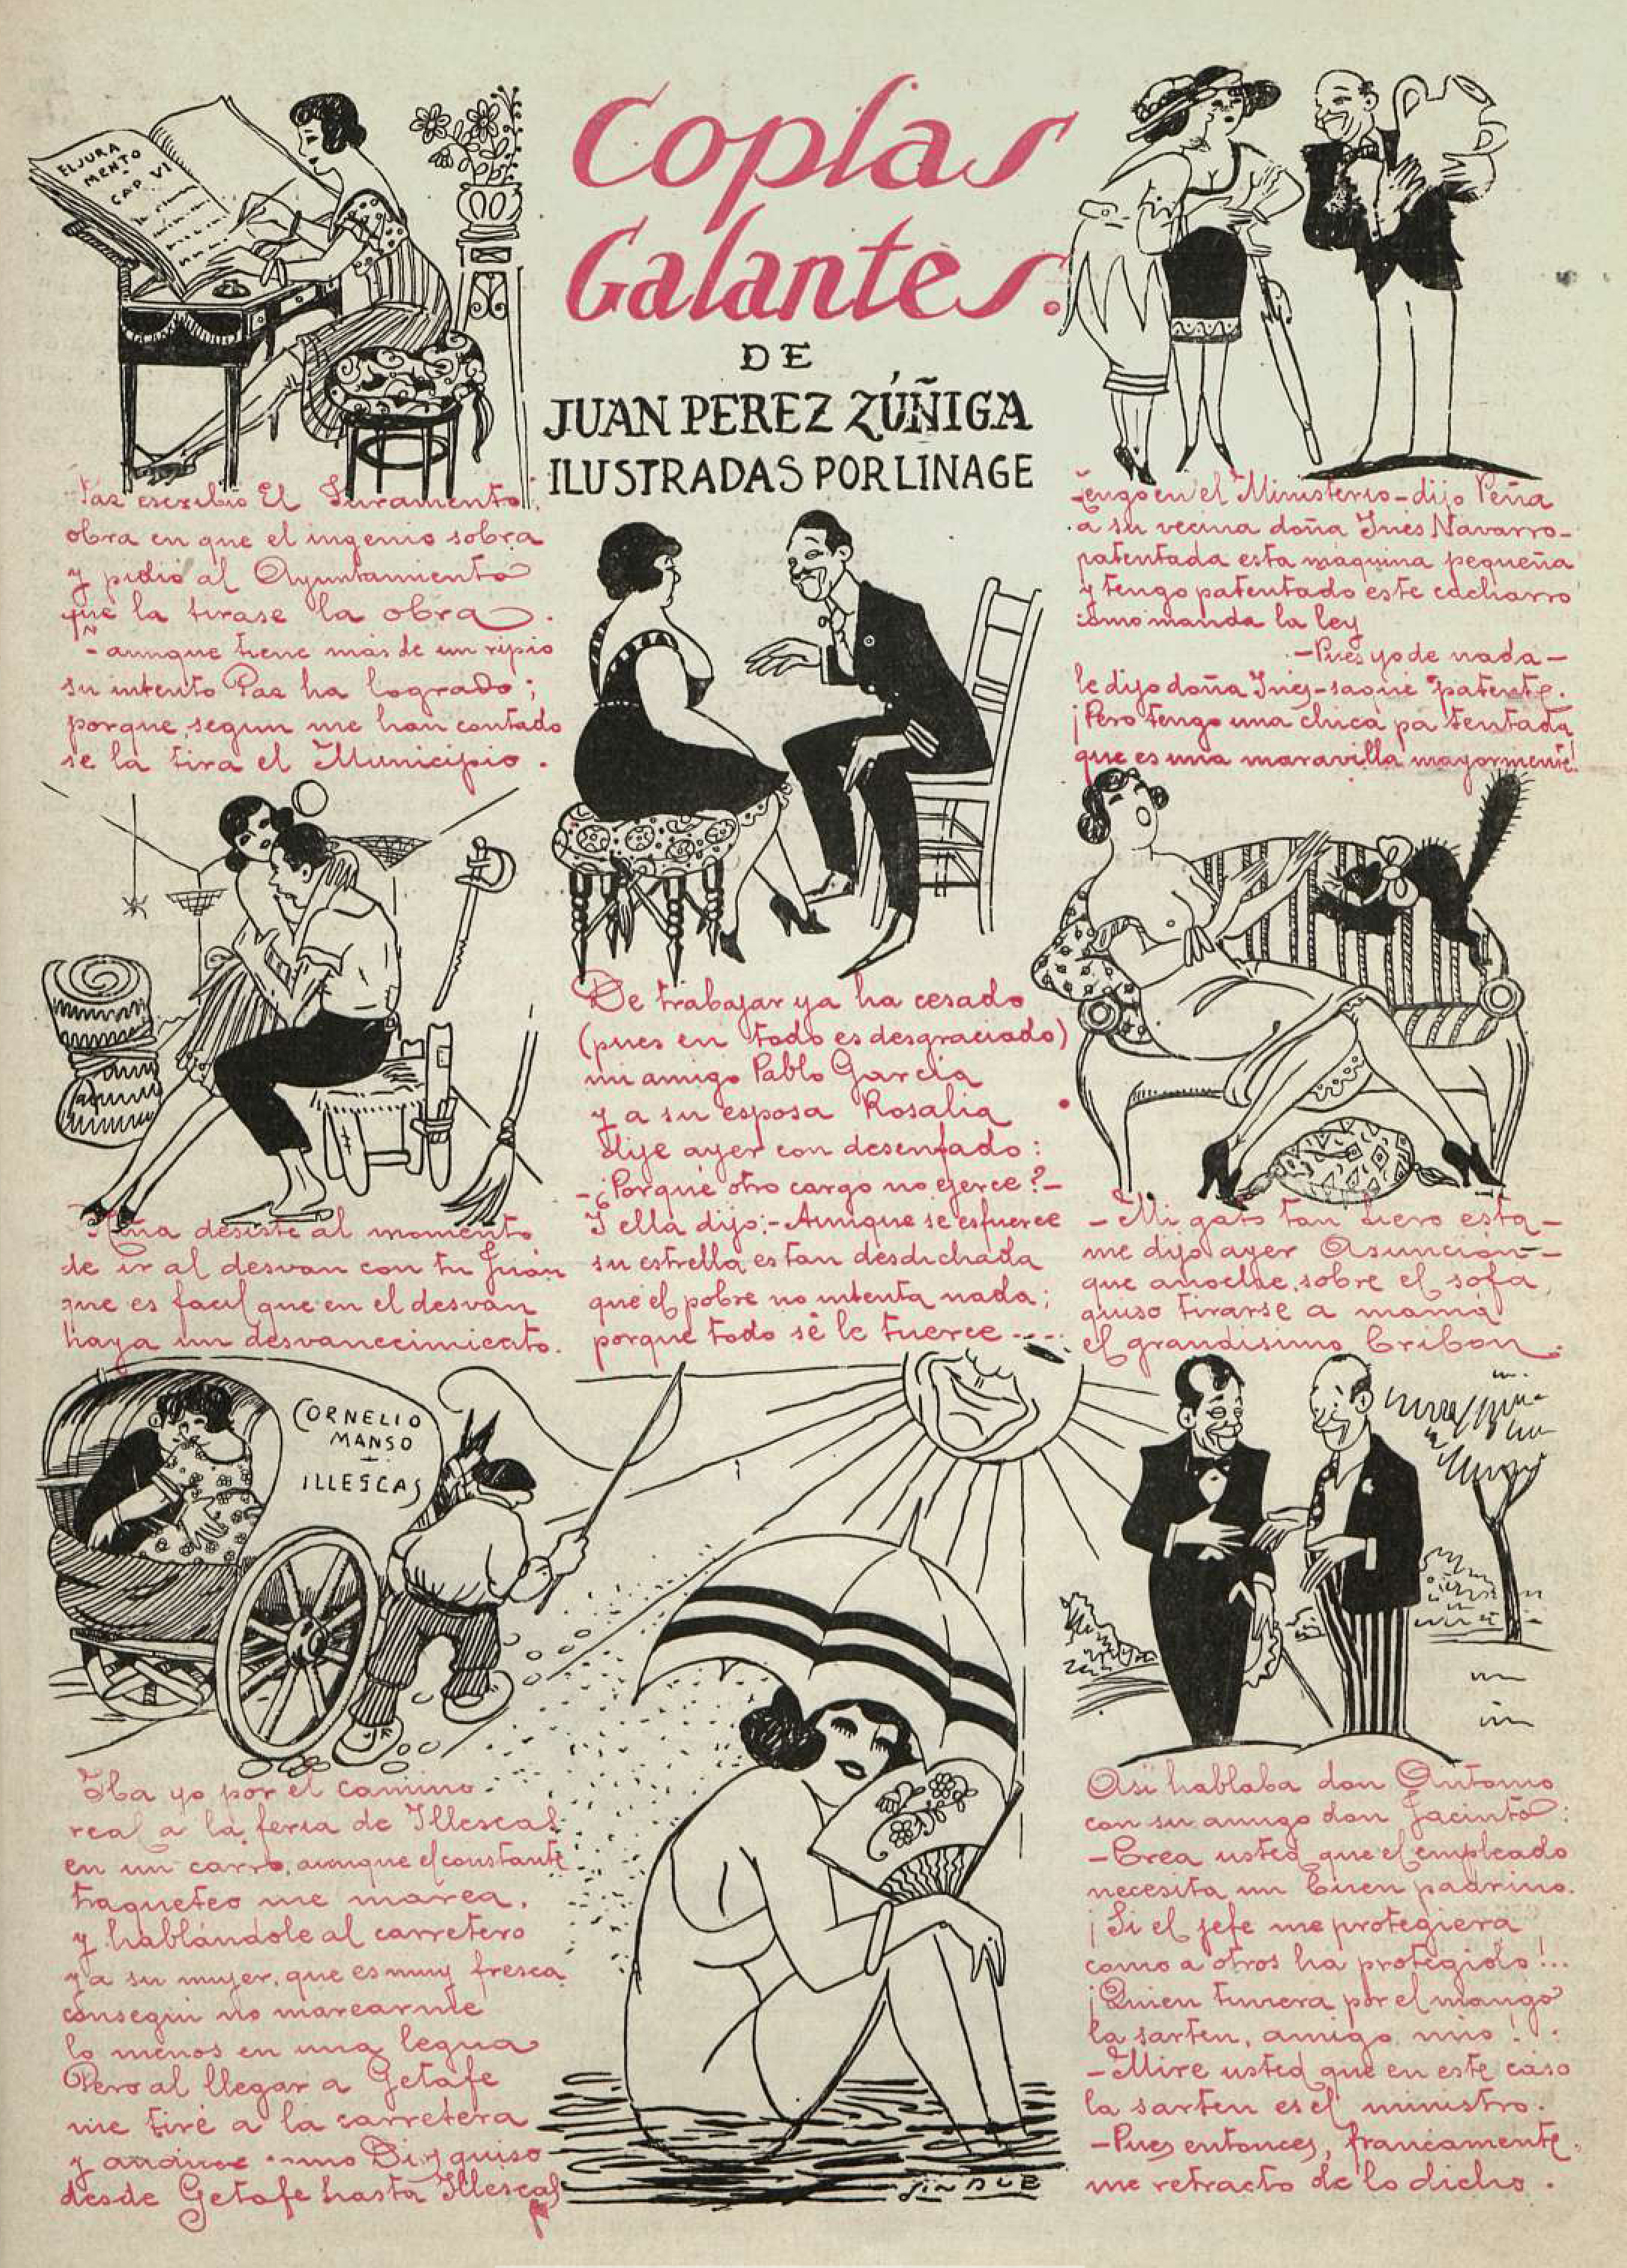 Coplas
Galantes.
DE
JUAN PEREZ ZÚÑIGA
ILUSTRADAS POR LINAGE
EL JURA
MENTO
CAP. VI
Paz escribió El Juramento,
obra en que el ingenio sobra
y pidió al Ayuntamiento
que la tirase la obra.
Y aunque tiene más de un ripio
su intento Paz ha logrado;
porque segun me han contado
se la tira el Municipio.
Tengo en el Ministerio - dijo Peña
a su vecina doña Ines Navarro -
patentada esta máquina pequeña
y tengo patentado este cacharro
como manda la ley
- Pues yo de nada -
le dijo doña Ines - saqué patente.
¡Pero tengo una chica pa tentada
que es una maravilla mayormente!
Niña desiste al momento
de ir al desvan con tu Juan
que es facil que en el desván
haya un desvanecimiento.
De trabajar ya ha cesado
(pues en todo es desgraciado)
mi amigo Pablo García
y a su esposa Rosalia
dije ayer con desenfado:
- ¿Porqué otro cargo no ejerce? -
Y ella dijo: - Aunque se esfuerce
su estrella es tan desdichada
que el pobre no intenta nada;
porque todo se le tuerce ....
- Mi gato tan fiero está -
me dijo ayer Asunción -
que anoche, sobre el sofá,
quiso tirarse a mamá
el grandisimo bribon.
CORNELIO
MANSO
-
ILLESCAS
Iba yo por el camino
real a la feria de Illescas
en un carro, aunque el constante
traqueteo me marea,
y hablándole al carretero
y a su mujer, que es muy fresca
conseguí no marearme
lo menos en una legua
Pero al llegar a Getafe
me tiré a la carretera
y anduve como Dios quiso
desde Getafe hasta Illescas
Asi hablaba don Antonio
con su amigo don Jacinto:
- Crea usted que el empleado
necesita un buen padrino.
¡Si el jefe me protegiera
como a otros ha protegido!...
¡Quien tuviera por el mango
la sarten, amigo mio!
- Mire usted que en este caso
la sarten es el ministro.
- Pues entonces, francamente,
me retracto de lo dicho.